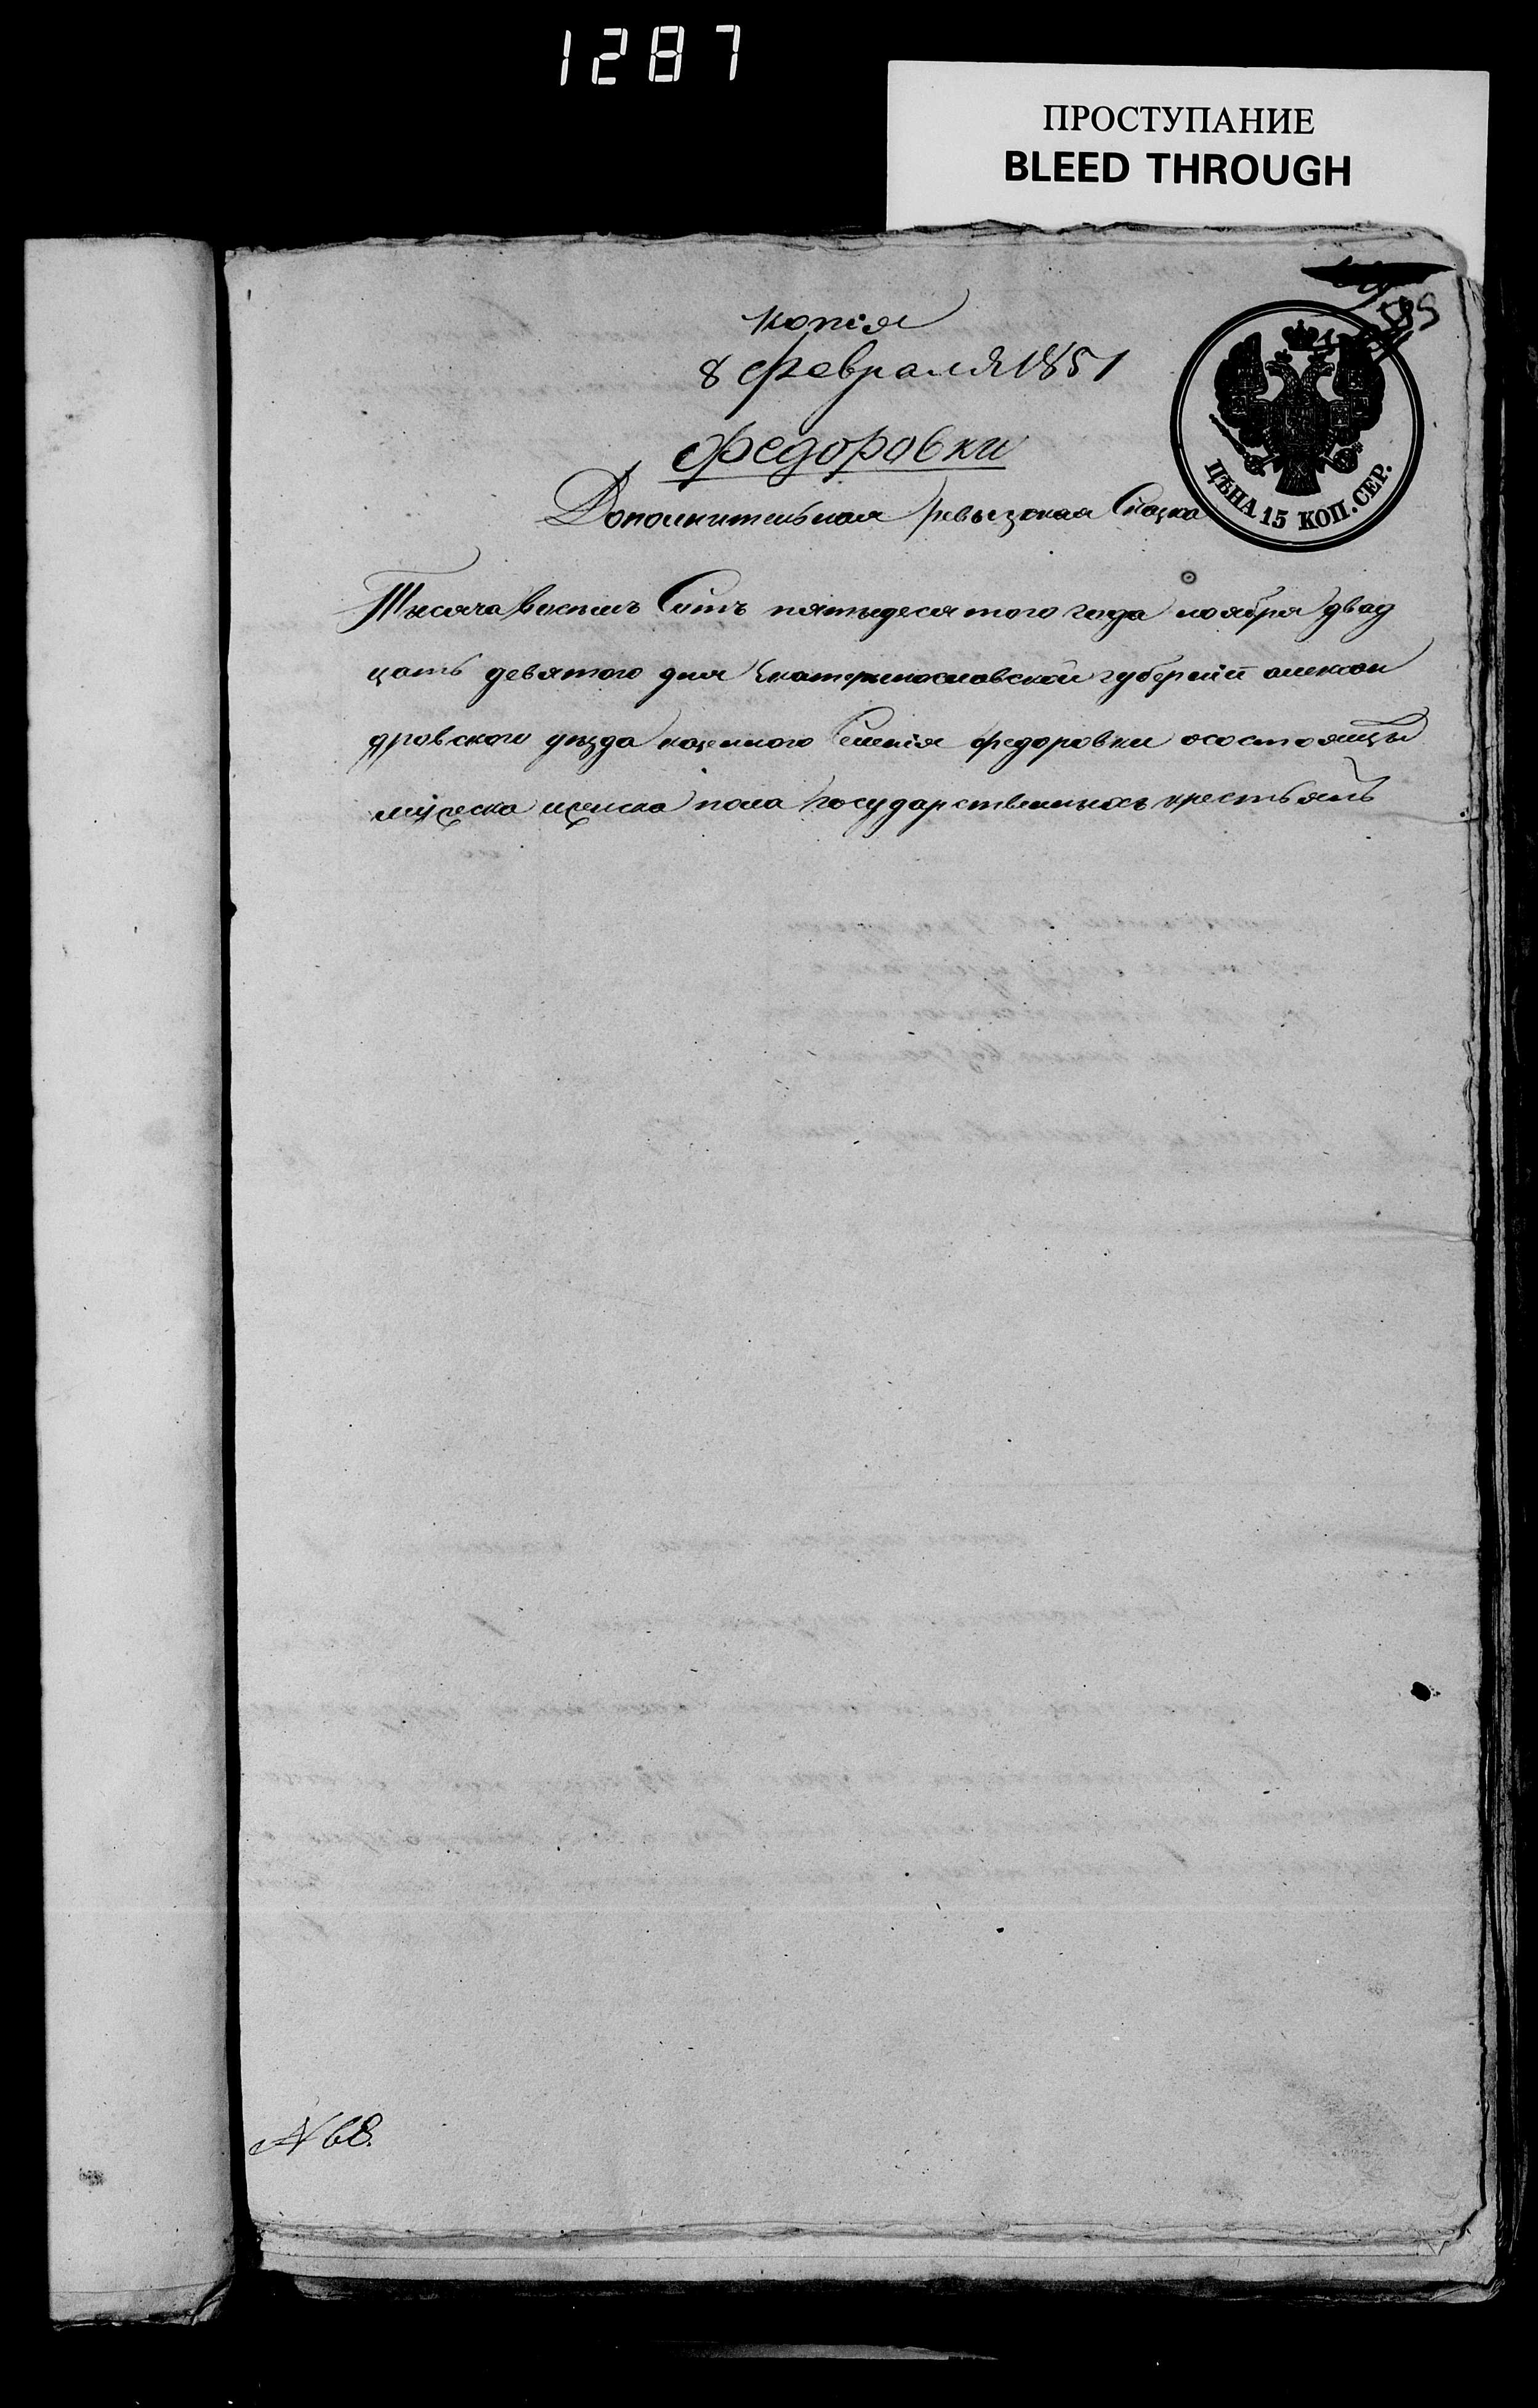 1287
ПРОСТУПАНИЕ
BLEED THROUGH
Копія
8 февраля 1851
Федоровки
Дополнительная ревызская Сказка
ЦѢНА 15 КОП. СЕР.
Тысяча восемъ Сотъ пятьдесятого года ноября двад
цать девятого дня Екатеринославской губерніи алексан
дровского уезда казенного Селенія федоровки осостоящы
мужеска иженска пола государственныхъ крестьянъ
№ 68.